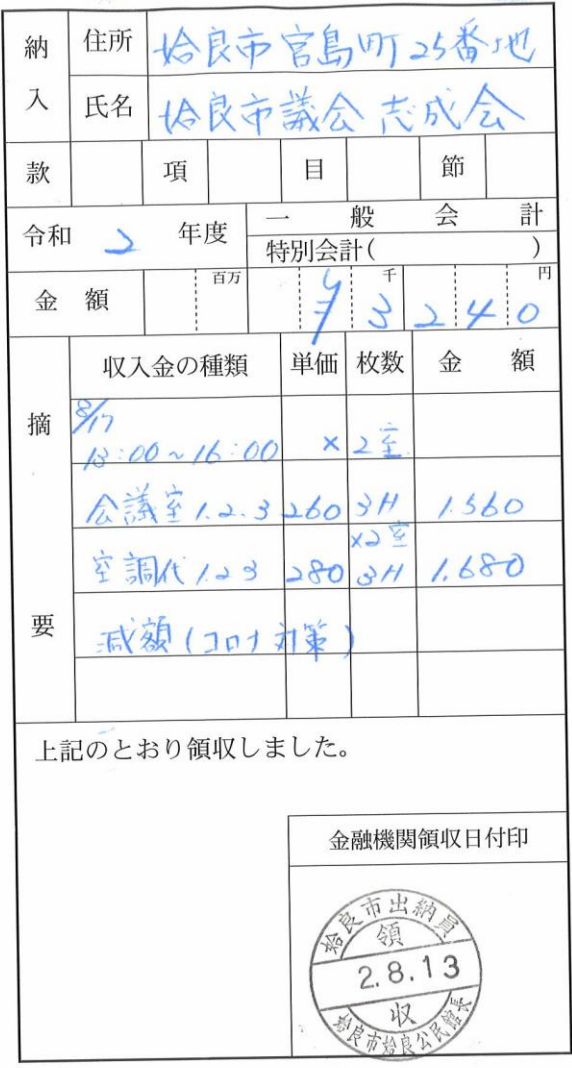 納入 住所 姶良市宮島町25番地
氏名 姶良市議会 志成会
款 項 目 節
令和 2 年度 一般会計
特別会計( )
金額 百万 千 円 ¥3240
摘要 収入金の種類 単価 枚数 金額
8/17
13:00~16:00 ×2室
会議室1.2.3 260 3H 1.560
×2室
空調代1.2.3 280 3H 1.680
減額(コロナ対策)
上記のとおり領収しました。
金融機関領収日付印
姶良市出納員
領
2.8.13
収
姶良市姶良公民館長